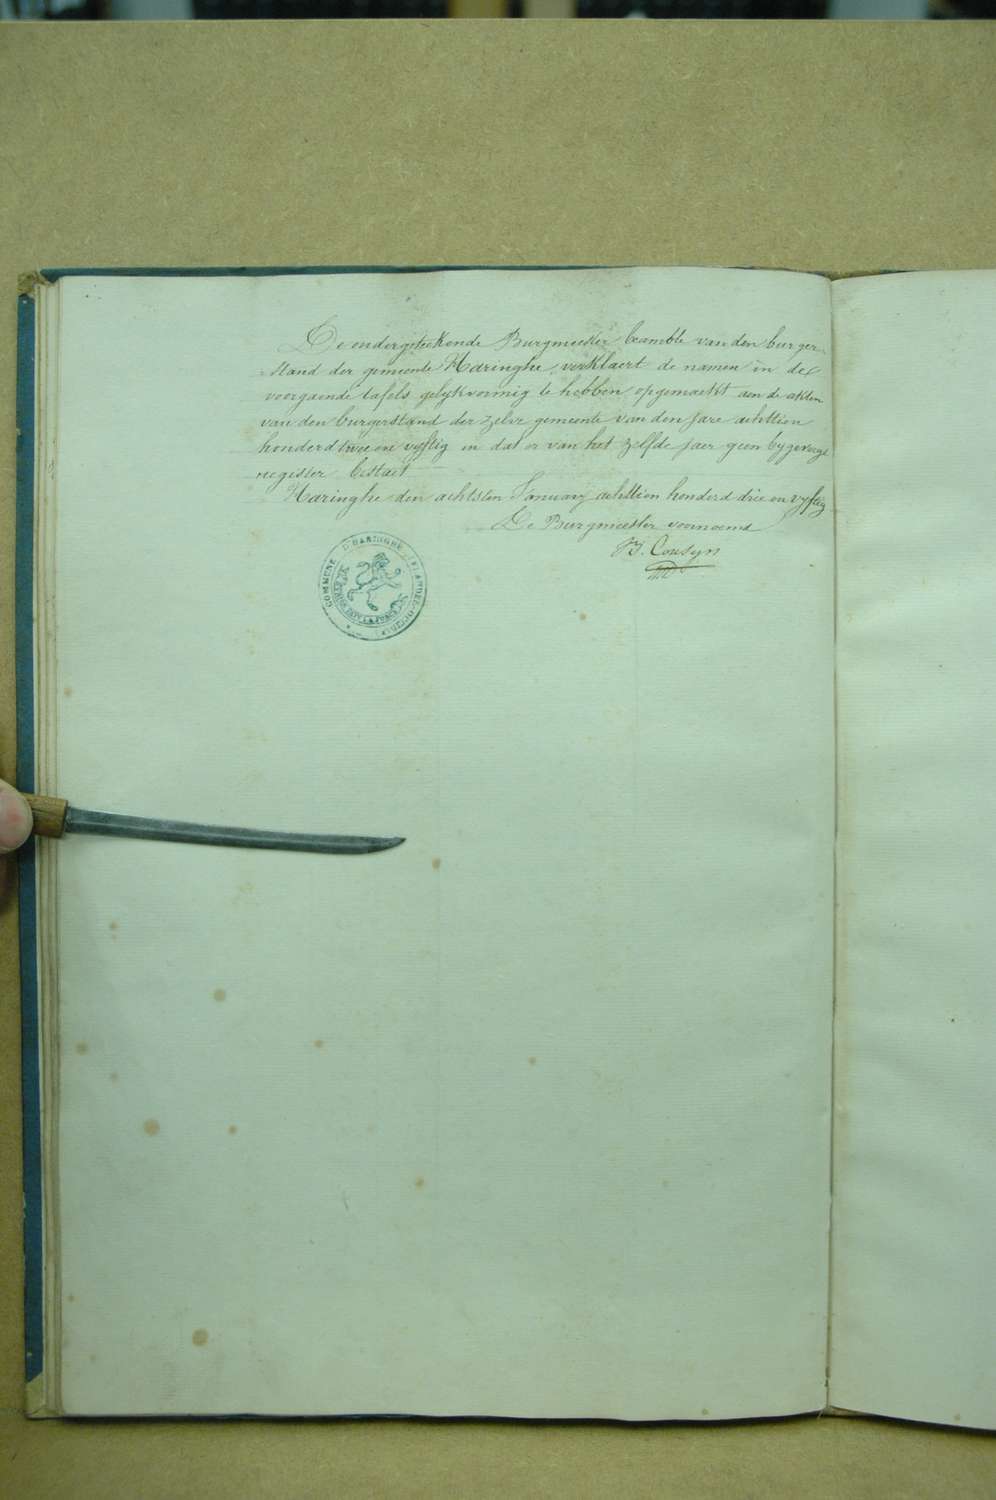 De ondergeteekende Burgmeester beambte van den burger-
stand der gemeente Haringhe, verklaert de namen in de
voorgaende tafels gelykvormig te hebben opgemaekt aen de akten
van den burgerstand der zelve gemeente van den Jare achttien
honderd twee en vyftig en dat er van het zelfde jaer geen bygevoegd
register bestaet
Haringhe den achtsten January achttien honderd drie en vyftig
De Burgmeester voornoemd
B. Cousyn
COMMUNE D'HARINGHE (FLANDRE-OCCID.)
L'UNION FAIT LA FORCE